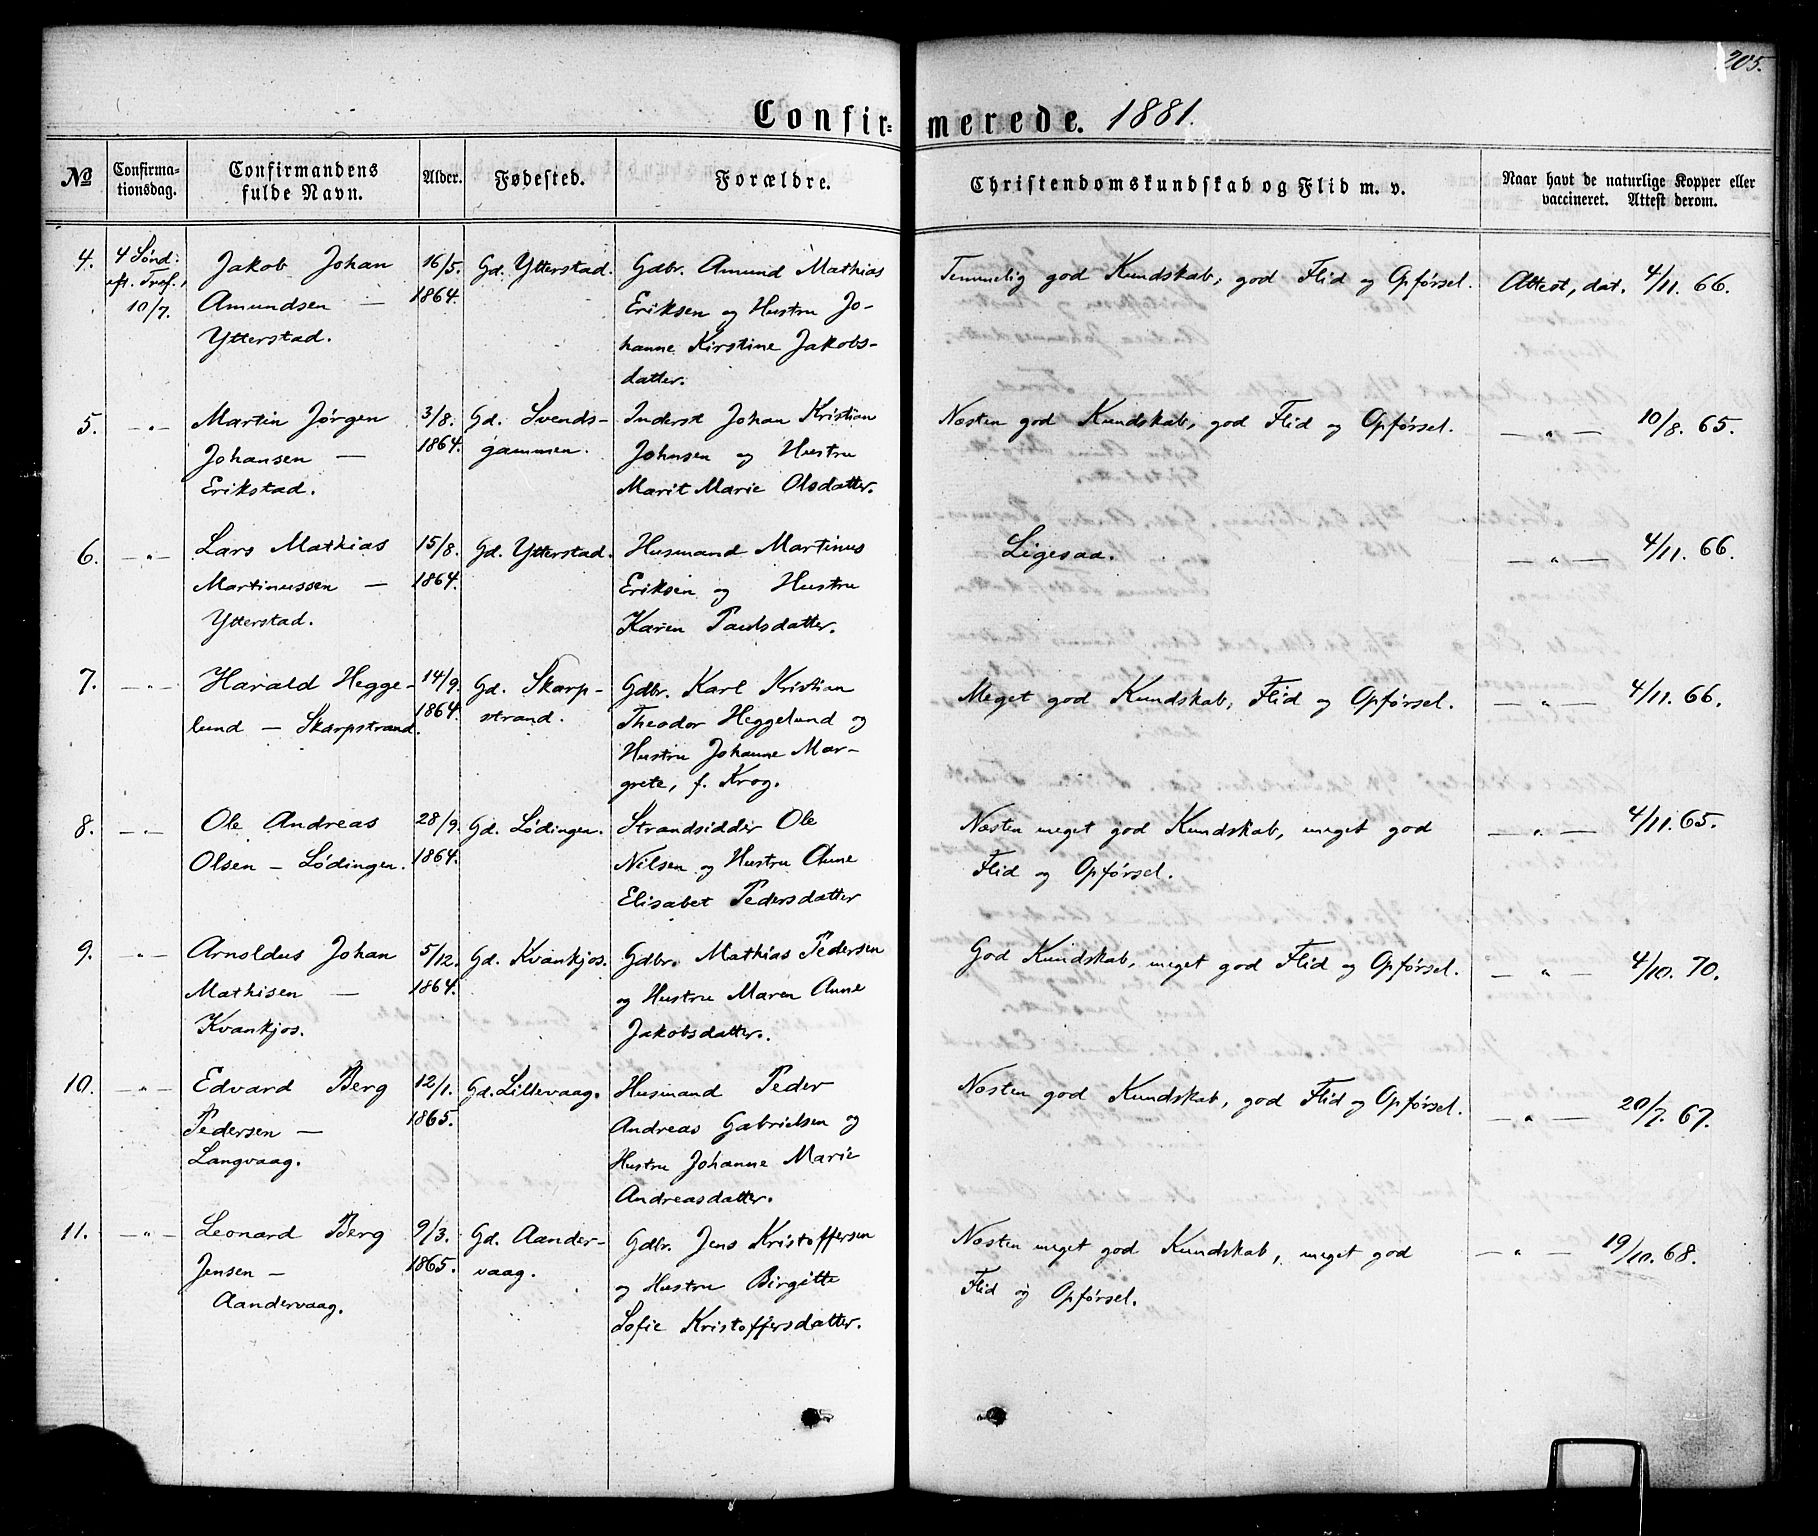 205.
Confirmerede. 1881.
No
Confirmationsdag.
Confirmandens fulde Navn.
Alder.
Fødested.
Forældre.
Christendomskundskab og Flid m. v.
Naar havt de naturlige Kopper eller vaccineret. Attest derom.
4.
4 Sønd:
eft. Tref.,
10/7.
Jakob Johan
Amundsen —
Ytterstad.
16/5.
1864.
Gd. Ytterstad.
Gdbr. Amund Mathias
Eriksen og Hustru Jo-
hanne Kirstine Jakobs-
datter.
Temmelig god Kundskab, god Flid og Opførsel.
Attest, dat. 4/11. 66.
5.
— " —
Martin Jørgen
Johansen —
Erikstad.
3/8.
1864.
Gd. Svends-
gammen.
Inderst Johan Kristian
Johnsen og Hustru
Marit Marie Olsdatter.
Næsten god Kundskab, god Flid og Opførsel.
— " — 10/8. 65.
6.
— " —
Lars Mathias
Martinussen —
Ytterstad.
15/8.
1864.
Gd. Ytterstad.
Husmand Martinus
Eriksen og Hustru
Karen Paulsdatter.
Ligesaa.
— " — 4/11. 66.
7.
— " —
Harald Hegge-
lund — Skarpstrand.
14/9.
1864.
Gd. Skarp-
strand.
Gdbr. Karl Kristian
Theodor Heggelund og
Hustru Johanne Mar-
grete, f. Krog.
Meget god Kundskab, Flid og Opførsel.
— " — 4/11. 66.
8.
— " —
Ole Andreas
Olsen — Lødingen.
28/9.
1864.
Gd. Lødingen.
Strandsidder Ole
Nilsen og Hustru Anne
Elisabet Pedersdatter
Næsten meget god Kundskab, meget god
Flid og Opførsel.
— " — 4/11. 65.
9.
— " —
Arnoldus Johan
Mathisen —
Kvankjos.
5/12.
1864.
Gd. Kvankjos.
Gdbr. Mathias Pedersen
og Hustru Maren Anne
Jakobsdatter.
God Kundskab, meget god Flid og Opførsel.
— " — 4/10. 70.
10.
— " —
Edvard Berg
Pedersen —
Langvaag.
12/1.
1865.
Gd. Lillevaag.
Husmand Peder
Andreas Gabrielsen og
Hustru Johanne Marie
Andreasdatter.
Næsten god Kundskab, god Flid og Opførsel.
— " — 20/7. 67.
11.
— " —
Leonard Berg
Jensen —
Aandervaag.
9/3.
1865.
Gd. Aander-
vaag.
Gdbr. Jens Kristoffersen
og Hustru Birgitte
Sofie Kristoffersdatter.
Næsten meget god Kundskab, meget god
Flid og Opførsel.
— " — 19/10. 68.